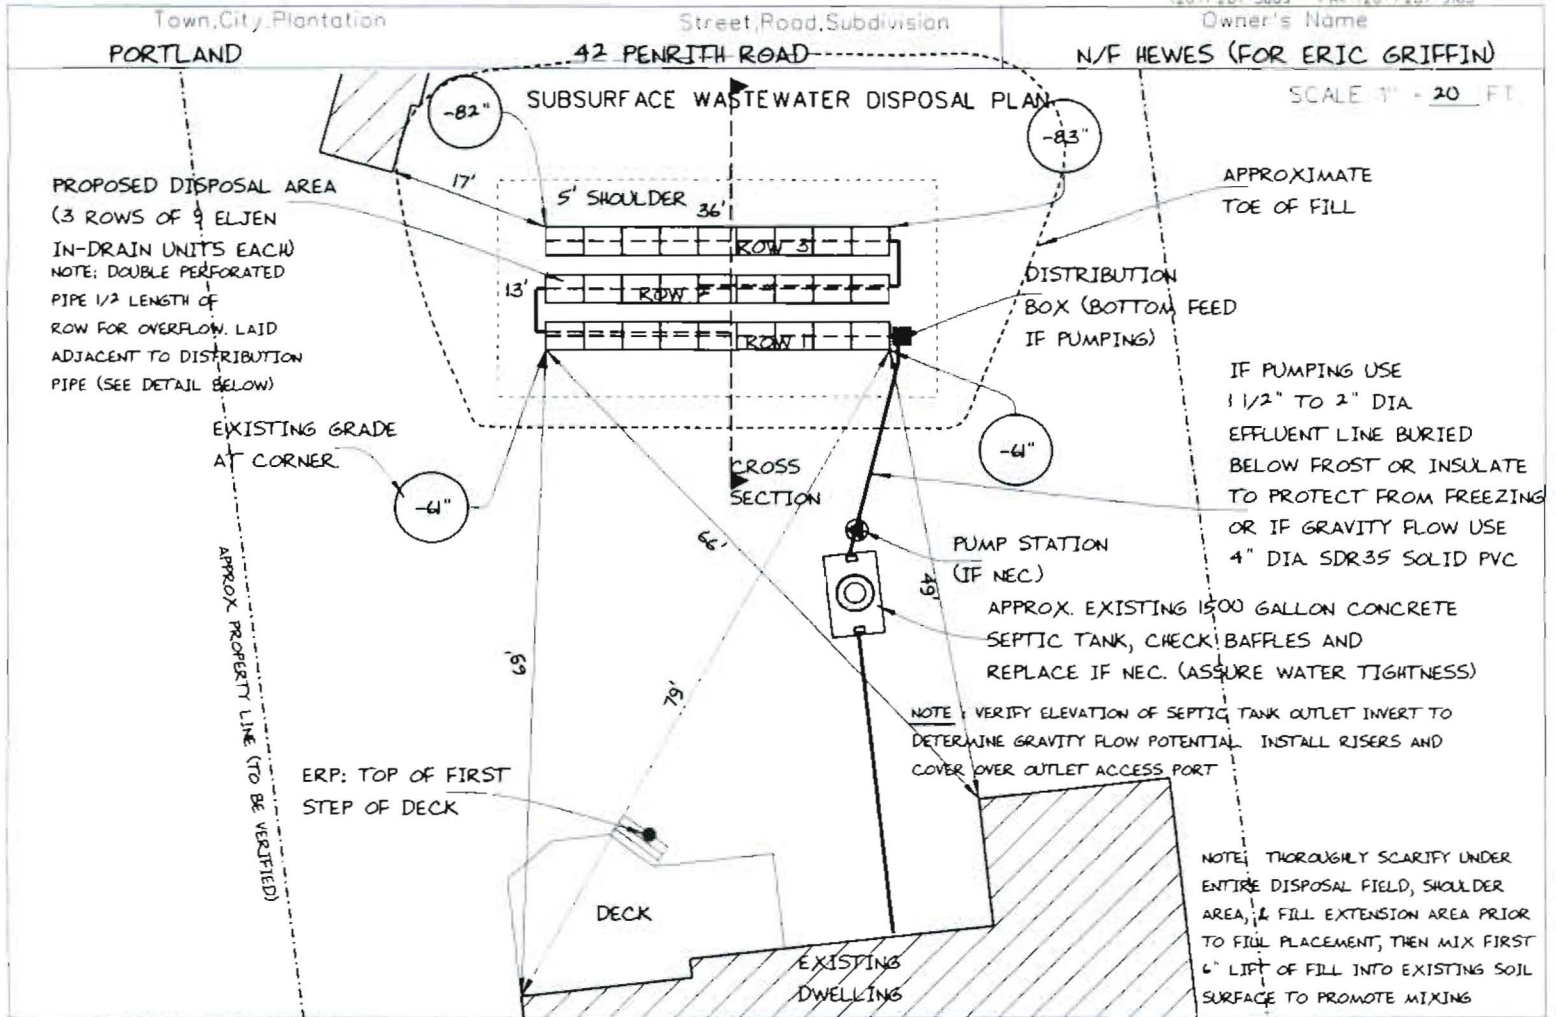 Town,City,Plantation
Street,Road,Subdivision
Owner's Name
PORTLAND
42 PENRITH ROAD
N/F HEWES (FOR ERIC GRIFFIN)
SUBSURFACE WASTEWATER DISPOSAL PLAN
SCALE 1" = 20 FT
-82"
-83"
17'
PROPOSED DISPOSAL AREA
(3 ROWS OF 9 ELJEN
IN-DRAIN UNITS EACH)
NOTE: DOUBLE PERFORATED
PIPE 1/2 LENGTH OF
ROW FOR OVERFLOW. LAID
ADJACENT TO DISTRIBUTION
PIPE (SEE DETAIL BELOW)
5' SHOULDER
36'
ROW 3
13'
ROW 2
ROW 1
APPROXIMATE
TOE OF FILL
DISTRIBUTION
BOX (BOTTOM FEED
IF PUMPING)
IF PUMPING USE
1 1/2" TO 2" DIA
EFFLUENT LINE BURIED
BELOW FROST OR INSULATE
TO PROTECT FROM FREEZING
OR IF GRAVITY FLOW USE
4" DIA SDR35 SOLID PVC
EXISTING GRADE
AT CORNER
-61"
-61"
CROSS
SECTION
66'
PUMP STATION
(IF NEC.)
49'
APPROX. EXISTING 1500 GALLON CONCRETE
SEPTIC TANK, CHECK BAFFLES AND
REPLACE IF NEC. (ASSURE WATER TIGHTNESS)
69'
79'
NOTE: VERIFY ELEVATION OF SEPTIC TANK OUTLET INVERT TO
DETERMINE GRAVITY FLOW POTENTIAL INSTALL RISERS AND
COVER OVER OUTLET ACCESS PORT
APPROX PROPERTY LINE (TO BE VERIFIED)
ERP: TOP OF FIRST
STEP OF DECK
DECK
EXISTING
DWELLING
NOTE: THOROUGHLY SCARIFY UNDER
ENTIRE DISPOSAL FIELD, SHOULDER
AREA, & FILL EXTENSION AREA PRIOR
TO FILL PLACEMENT, THEN MIX FIRST
6" LIFT OF FILL INTO EXISTING SOIL
SURFACE TO PROMOTE MIXING